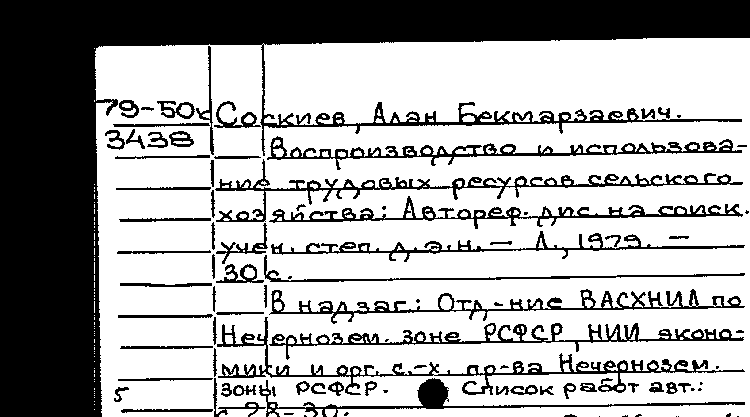 79-50к Соскиев, Алан Бекмарзаевич.
3438
Воспроизводство и использова-
ние трудовых ресурсов сельского
хозяйства: Автореф. дис. на соиск.
учен. степ. д.э.н. — Л., 1979. —
30 с.
В надзаг.: Отд-ние ВАСХНИЛ по
Нечернозем. зоне РСФСР, НИИ эконо-
мики и орг. с.-х. пр-ва Нечернозем.
зоны РСФСР. Список работ авт.:
5
с. 28-30.